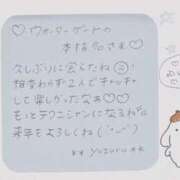 ♡ウォーターゲートの
本指名さま♡
久しぶりに会えたね☺
相変わらず2人でキャッキャ
して楽しかったなぁ♡
もっとテクニシャンになるね
来年もよろしくね(˙ᵕ˙)
** yuzuru **